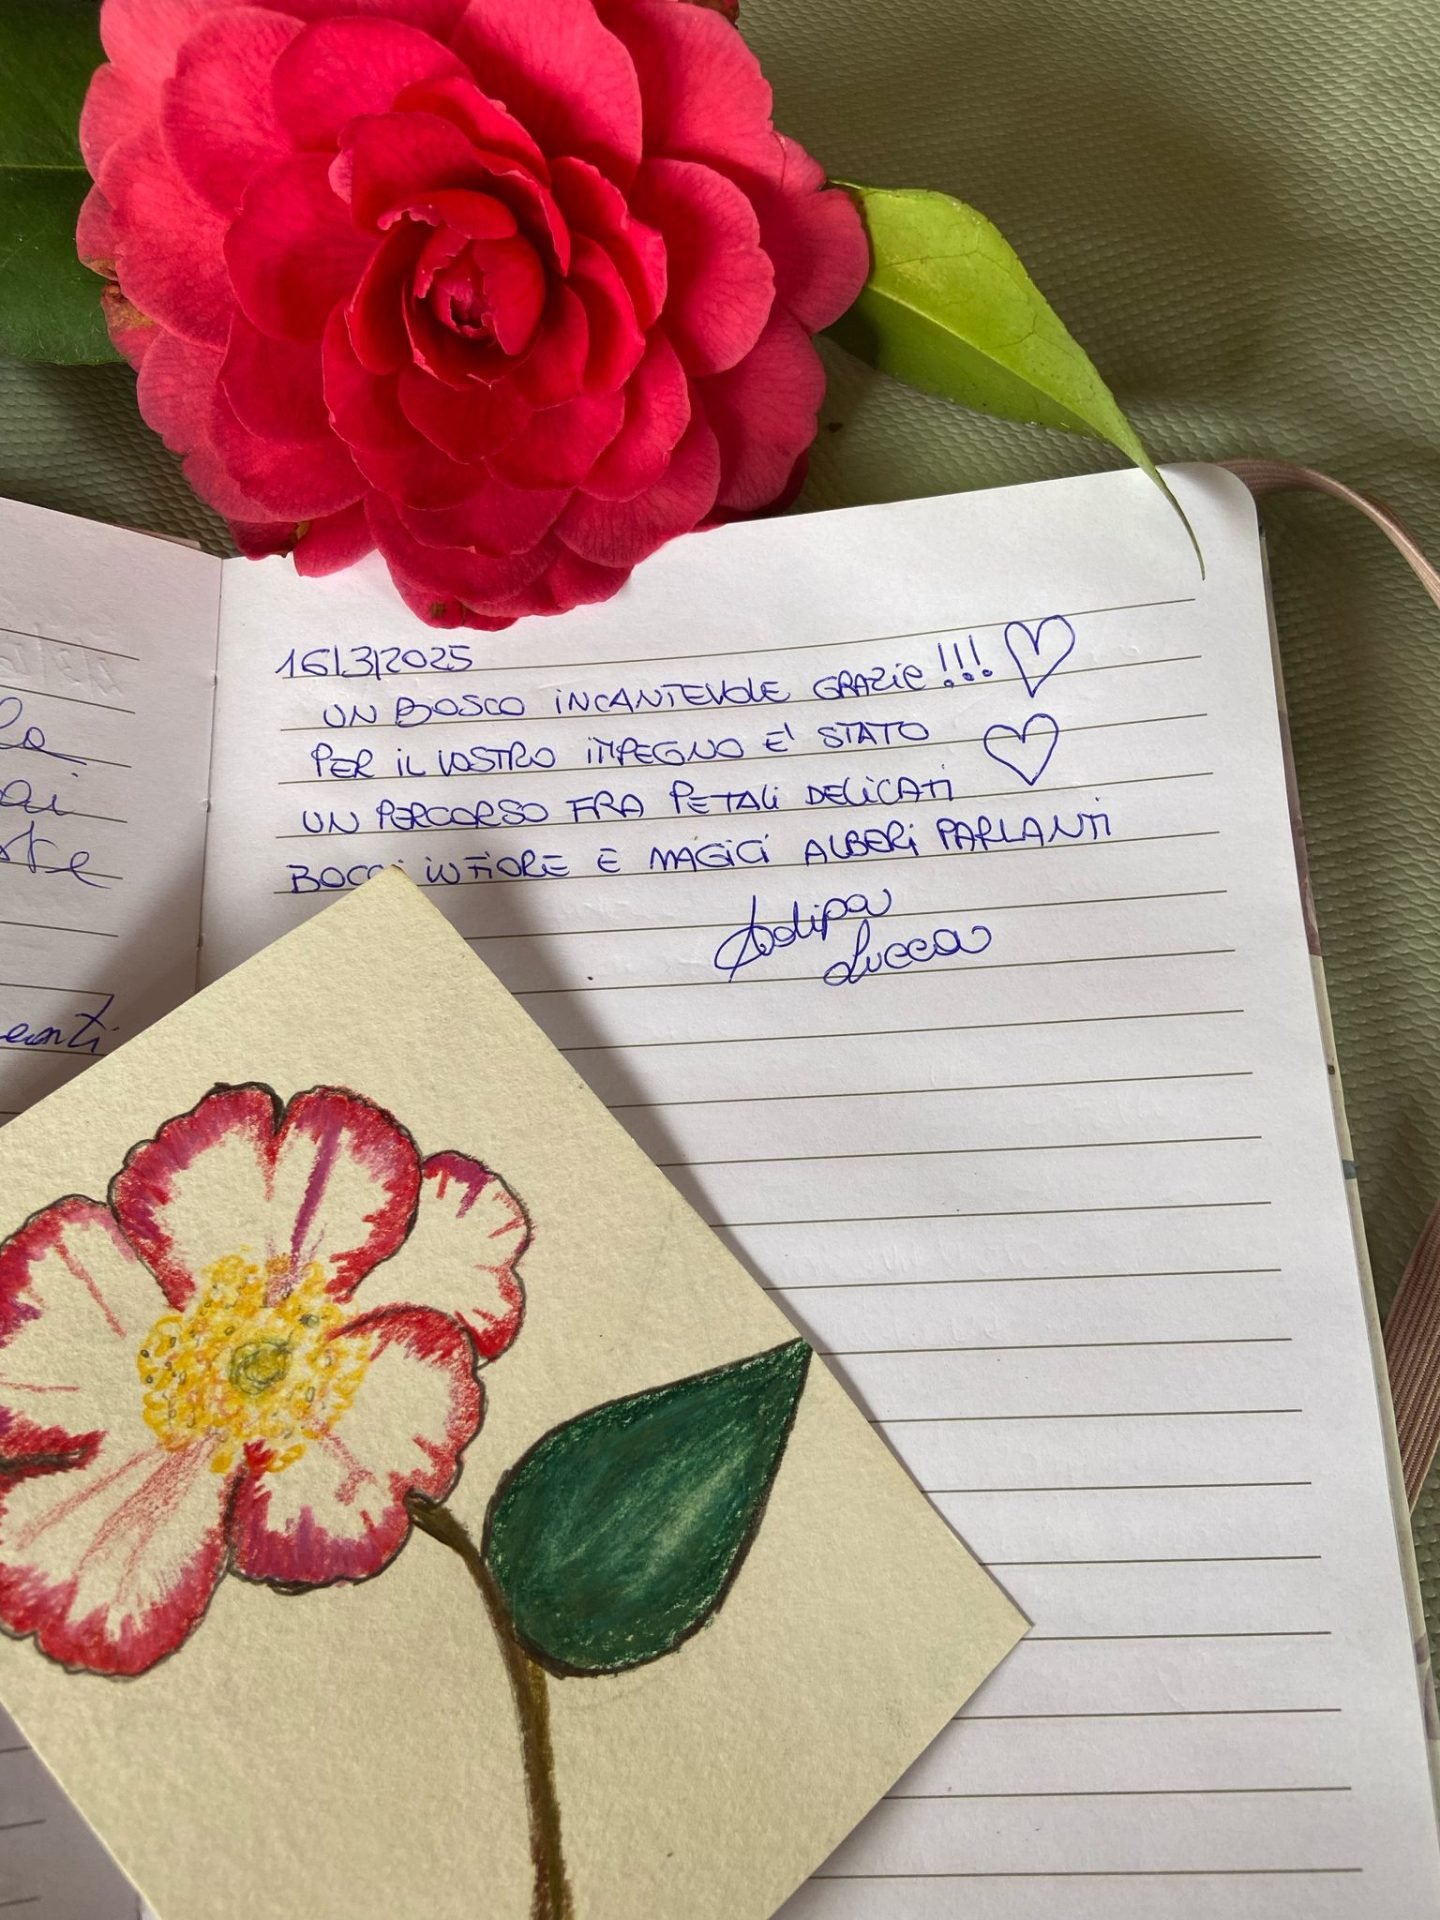 16/3/2025
UN BOSCO INCANTEVOLE GRAZIE!!! ♡
PER IL VOSTRO IMPEGNO E' STATO
UN PERCORSO FRA PETALI DELICATI ♡
IN FIORE E MAGICI ALBERI PARLANTI
Lucca